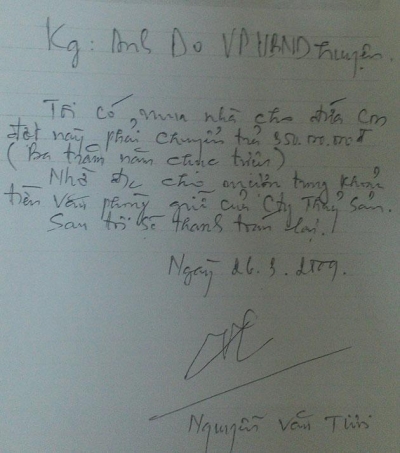 Kg: Anh Do VP UBND huyện.
Tôi có mua nhà cho đứa con
đợt này phải chuyển trả 350.000.000đ
(Ba trăm năm chục triệu)
Nhờ đc cho mượn trong khoản
tiền Văn phòng giữ của Cty Thuỷ Sản.
Sau tôi sẽ thanh toán lại.
Ngày 26.3.2009.
Nguyễn Văn